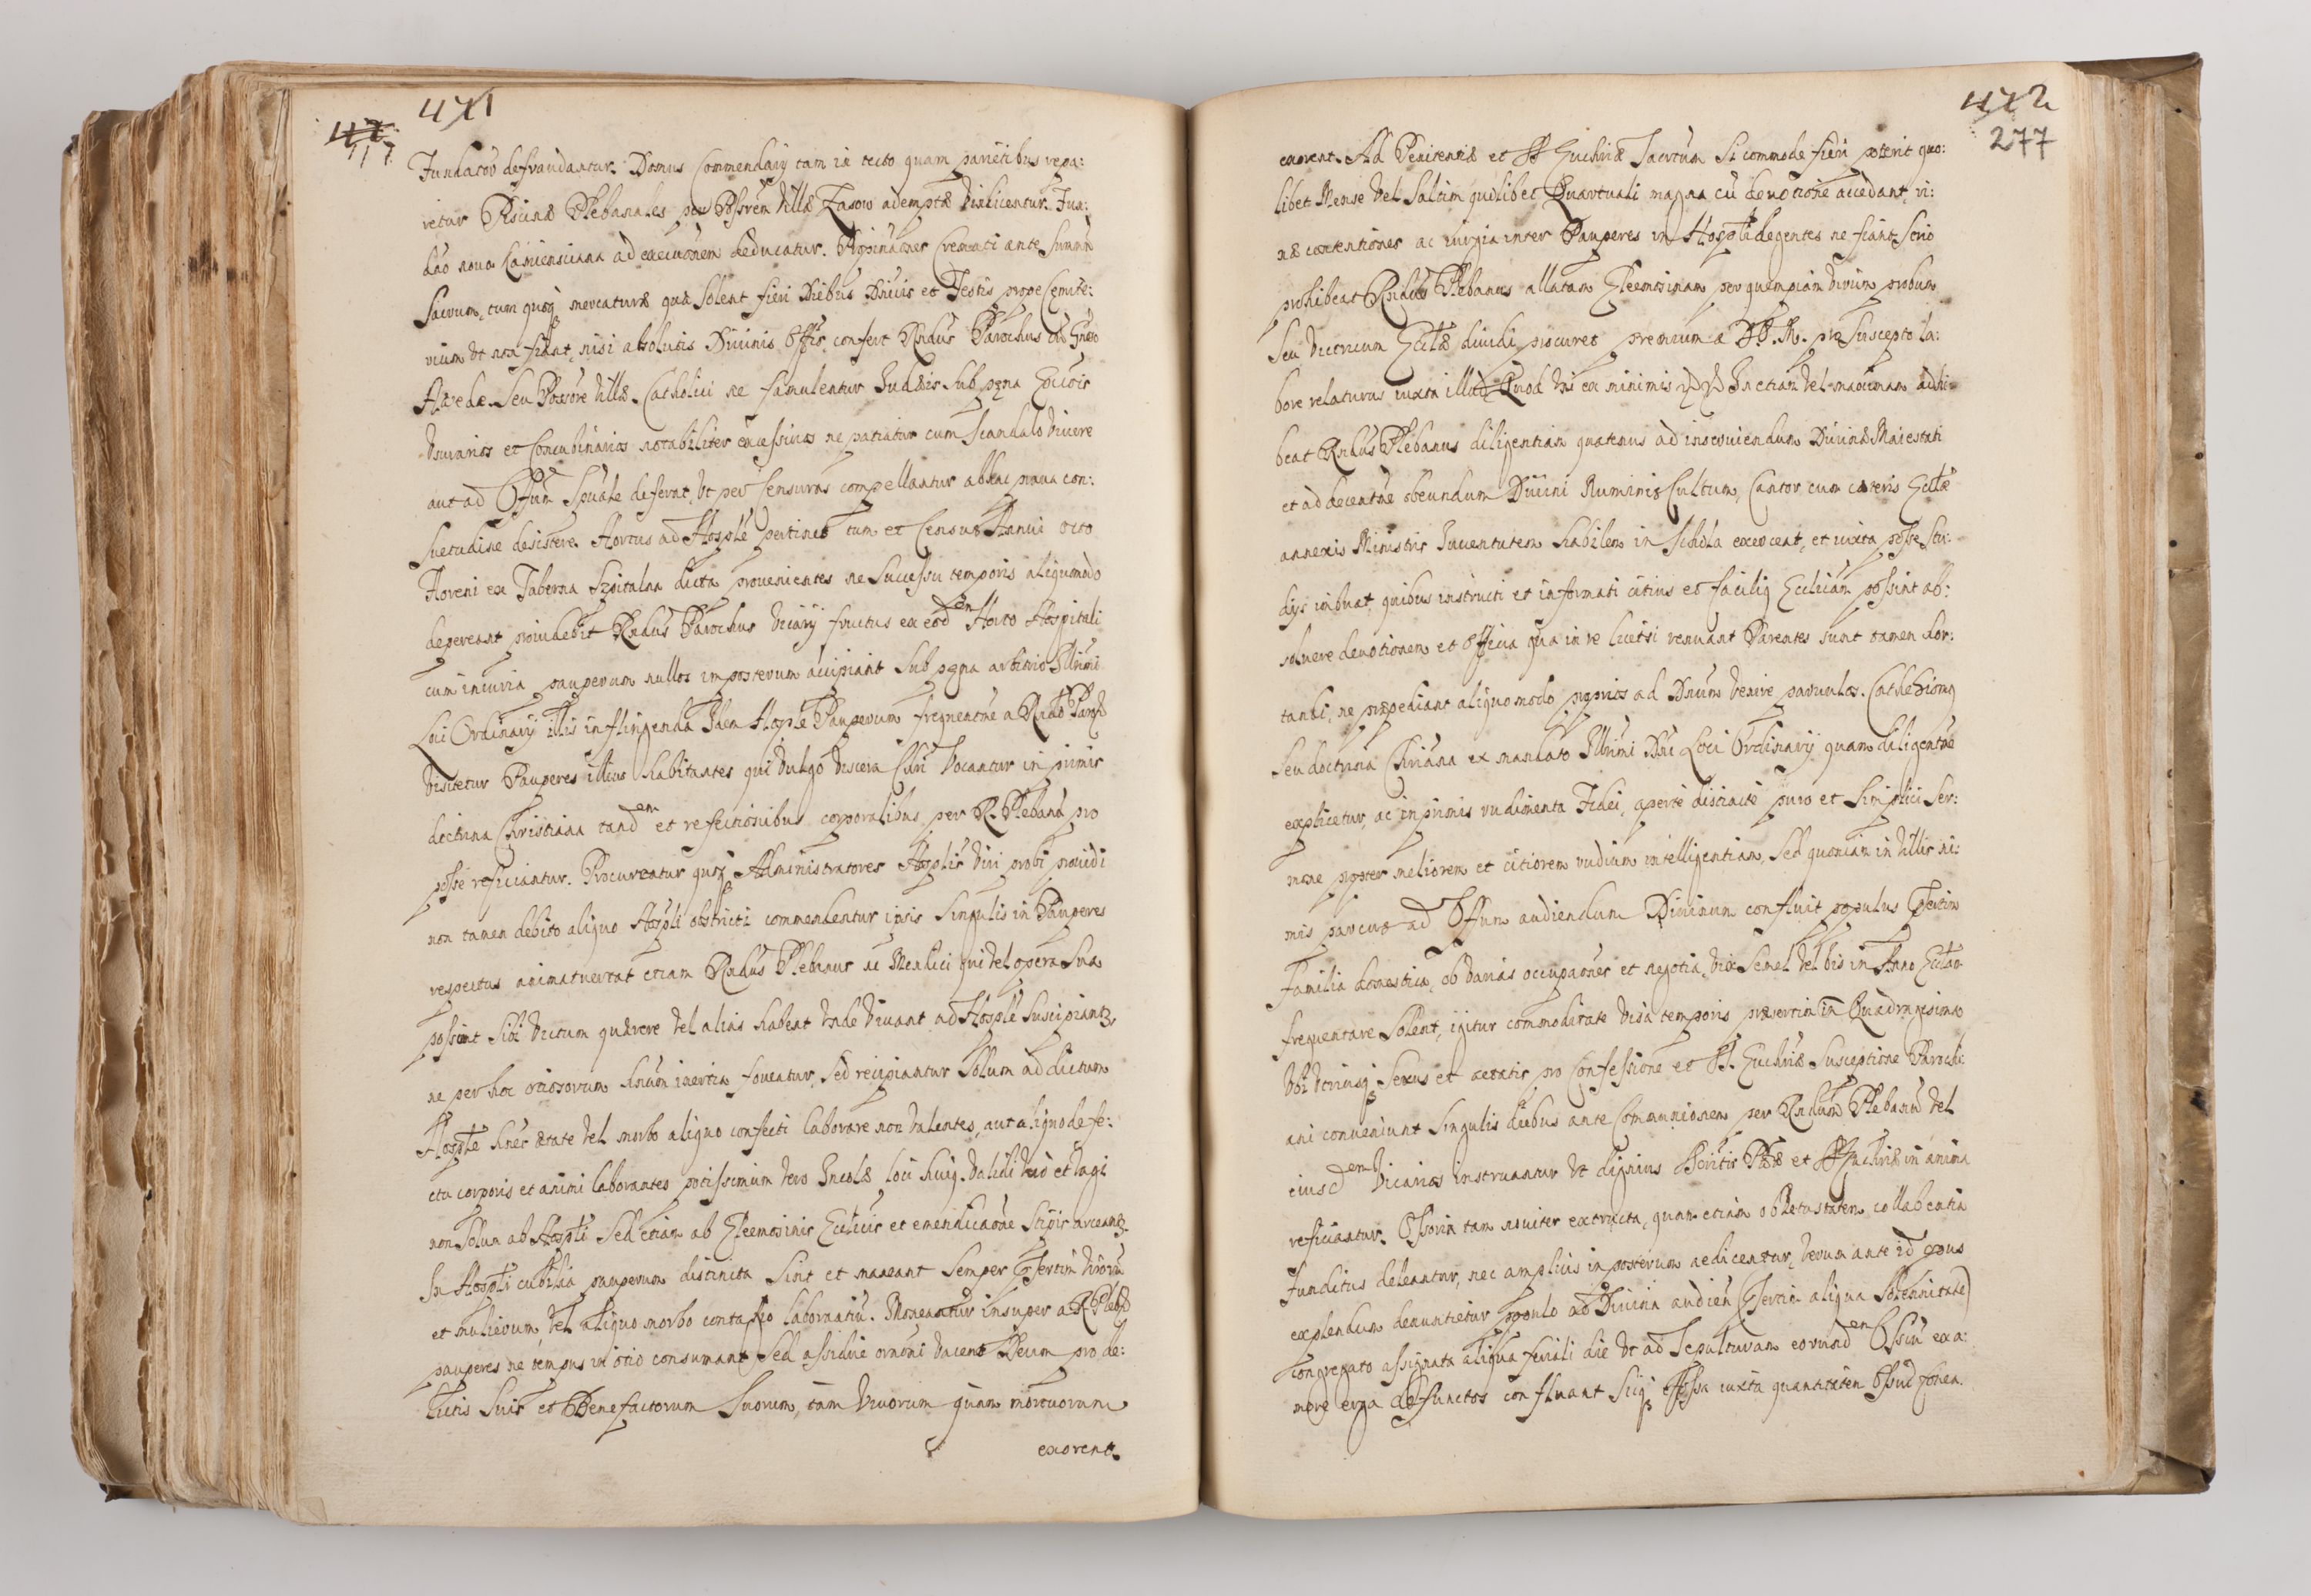 471
117
Fundatores defraudantur. Domus Commendarij tam in tecto quam parietibus repa:
retur Piscinæ Plebanales per Possrem Villæ Zasow ademptæ vindicentur. Fun:
dao noua ad execuonem deducatur. Cremati ante Summu
Sacrum, tum quoq mercaturæ quæ Solent fieri Diebus Dnicis et Festis prope Cemite:
rium vt non fiant, nisi absolutis Diuinis Offijs confert Rndus Parochus cum Gnoso
Hærede Seu Possore Villæ. Catholici ne famulentur Iudæis Sub pæna Excois
Vsurarios et Concubinarios notabiliter excessiuos ne patiatur cum Scandalo Viuere
aut ad Offum Spuale deferat, vt per Censuras compellantur ab hac praua con:
Suetudine desistere. Hortus ad Hosple pertinens tum et Census Annui octo
Floreni ex Taberna Szpitalna dicta prouenientes ne Successu temporis aliquomodo
depereant prouidebit Rndus Parochus Vicarij fructus ex eodem Horto Hospitali
cum iniuria pauperum nullos imposterum accipiant Sub pæna arbitrio Illrimi
Loci Ordinarij illis infligenda Idem Hosple Pauperum frequenter a Rndo Paroch
Visitetur Pauperes illius habitantes qui Vulgo Viscera Chri Vocantur in primis
doctrina Christiana tandem et refectionibus corporalibus per R. Plebanu pro
posse reficiantur. Procurentur quoq Administratores Hosplis Viri probi prouidi
non tamen debito aliquo Hospli obstricti commendentur ipsis Singulis in Pauperes
respectus animaduertat etiam Rndus Plebanus ne Mendici qui Vel opera Sua
possunt Sibi Victum quærere Vel alias habent Vnde Viuant ad Hosple Suscipiantur,
ne per hoc otiosorum hnum inertia foueatur, Sed recipiantur Solum ad dictum
Hosple Senes ætate Vel morbo aliquo confecti laborare non Valentes, aut aliquo defe:
ctu corporis et animi laborantes potissimum Vero Incolæ loci huiq. Validi Vero et Vagi
non Solum ab Hospli Sed etiam ab Eleemosinis Eccticis et emendicaone Stipis arceantur
In Hospli cubilia pauperum distincta Sint et maneant Semper Psertim Viroru
et mulierum, Vel aliquo morbo contagio laborantiu. Moneantur insuper a R Plebo
pauperes ne tempus in otio consumant, Sed assidue oraoni Vacent Deum pro de:
lictis Suis et Benefactorum Suorum, tam Viuorum quam mortuorum
exorent.
472
277
exorent. Ad Penitentiæ et SS Euchriæ Sacrtum Si commode fieri poterit quo:
libet Mense Vel Saltim quolibet Quartuali magna cu deuotione accedant, ri:
xæ contentiones ac iurgia inter Pauperes in Hospli degentes ne fiant Serio
prohibeat Rndus Plebanus allatam Eleemosinam per quempiam Virum probum
Seu Vitricum Ecclæ diuidi procuret præmium a DD.M. pro Suscepto la:
bore relaturus iuxta illud Quod Vni ex minimis In etiam Vel maximam adhi:
beat Rndus Plebanus diligentiam quatenus ad inseruiendum Diuinæ Maiestati
et ad decenter obeundum Diuini Numinis Cultum, Cantor cum cæteris Ecclæ
annexis Ministris Iuuentutem habilem in Schola exerceat, et iuxta posse Stu:
dijs imbuat, quibus instructi et informati citius et faciliq Eccliam possint ab:
soluere deuotionem et Officia qua in re licetsi renuant Parentes sunt tamen hor:
tandi, ne præpediant aliquo modo proprios ad Dnum Venire paruulos. Cathehismq
Seu doctrina Chriana ex mandato Illrimi Dni Loci Ordinarij quam diligenter
explicetur, ac inprimis rudimenta Fidei, aperte distincte puro et Simplici Ser:
mone propter meliorem et citiorem rudium intelligentiam, Sed quoniam in Villis ni:
mis parcus ad Offum audiendum Diuinum confluit populus Psertim
Familia domestica, ob Varias occupaones et negotia, Vix Semel Vel bis in Anno Ecclam
frequentare Solent, igitur commoditate Visa temporis præsertim in Quadragesima
Vbi Vtriusq Sexus et ætatis pro Confessione et SS. Euchriæ Susceptione Parochi:
ani conueniunt Singulis diebus ante Communionem per Rndum Plebanu Vel
eiusdem Vicarios instruantur Vt dignius Scritis Pææ et SS Euchriæ in anima
reficiantur. Ossoria tam nouiter extructa, quam etiam ob Vetustatem collabentia
funditus deleantur, nec amplius imposterum ædicentur, Verum ante id opus
explendum denuntietur populo ad Diuina audien (Psertim aliqua Solennitate)
congregato assignata aliqua feriali die Vt ad Sepulturam eorundem Ossiu exa:
more erga defunctos confluant Sicq Fossa iuxta quantitatem Ossiu fouea